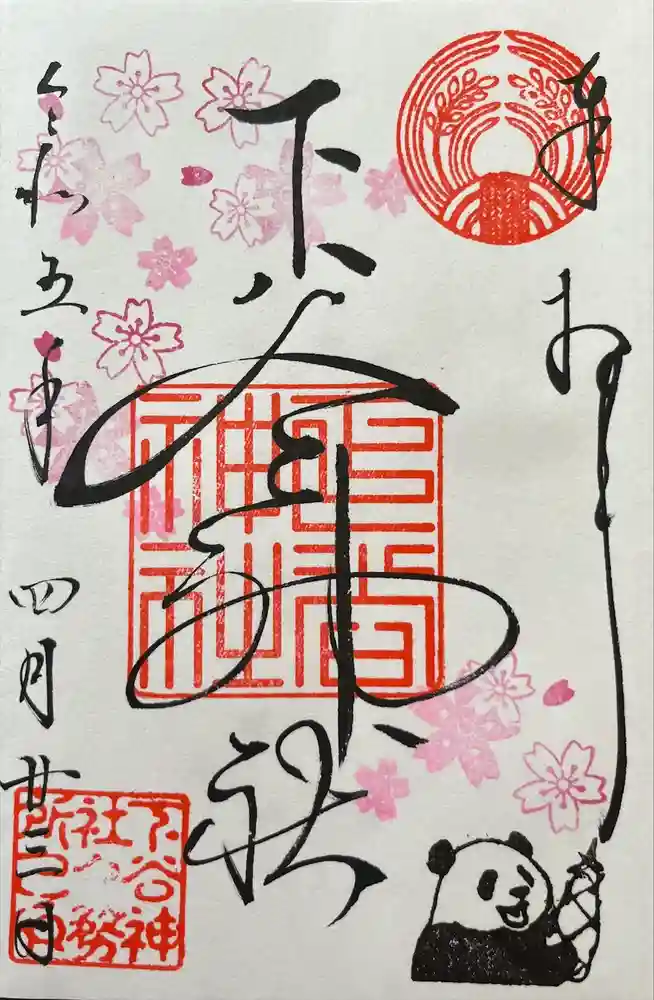 奉拝
下谷神社
令和五年 四月廿三日
下谷
神社
下谷神
社々務
所之印